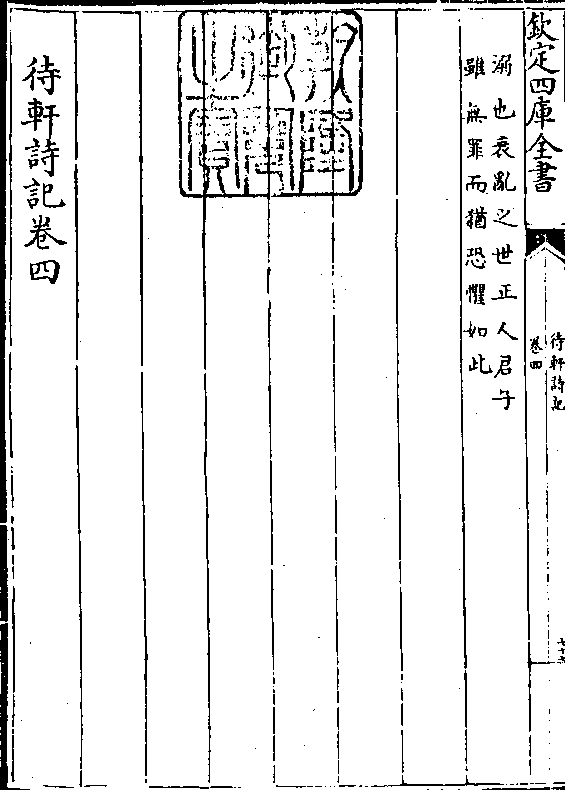 欽定四庫全書
待軒詩記
卷四
溺也衰亂之世正人君子
雖無罪而猶恐懼如此
乾隆
御覽
之寶
待軒詩記卷四